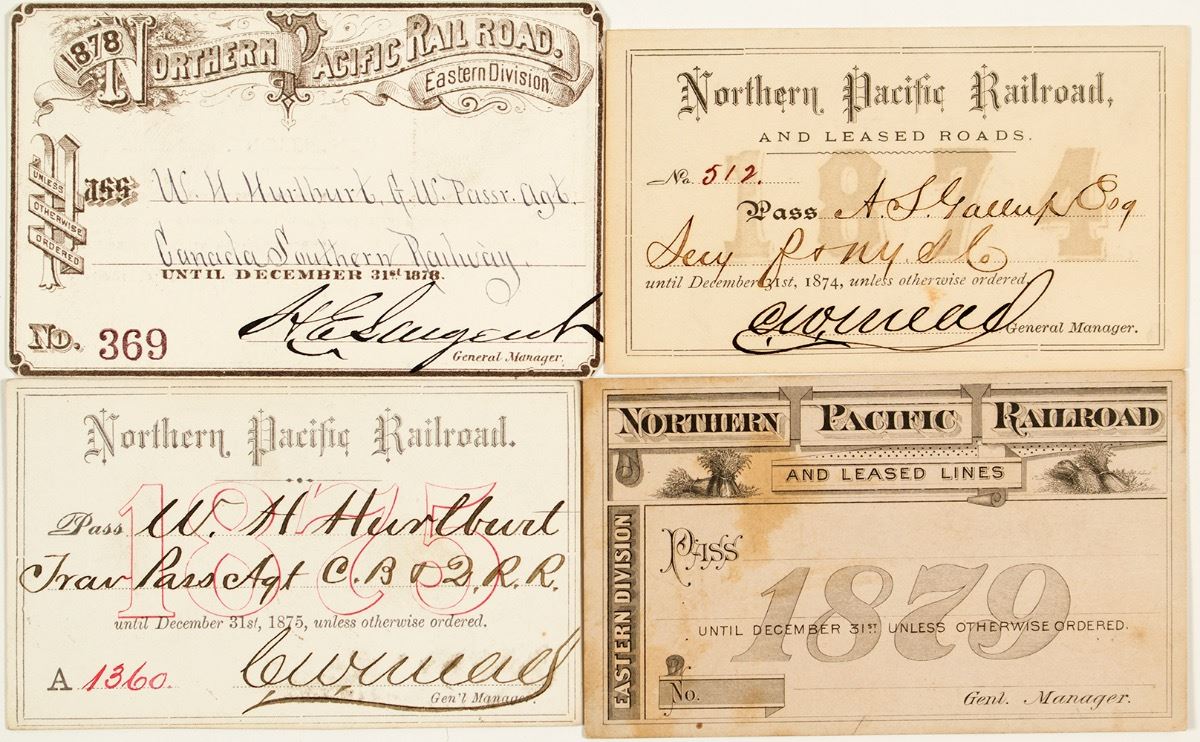 1878 NORTHERN PACIFIC RAIL ROAD.
Eastern Division
Pass W. H. Hurlburt, G. W. Passr. Agt.
UNLESS
OTHERWISE
ORDERED
Canada Southern Railway.
UNTIL DECEMBER 31st 1878.
H E Sargent
No. 369
General Manager.
Northern Pacific Railroad,
AND LEASED ROADS.
1874
No. 512.
Pass A. S. Gallup Esq
until December 31st, 1874, unless otherwise ordered.
C W Mead
General Manager.
Northern Pacific Railroad.
1875
Pass W. H Hurlburt
Trav Pass Agt C. B & Q. R. R.
until December 31st, 1875, unless otherwise ordered.
A 1360.
C W Mead
Gen'l Manager.
NORTHERN PACIFIC RAILROAD
AND LEASED LINES
EASTERN DIVISION
PASS
1879
UNTIL DECEMBER 31ST UNLESS OTHERWISE ORDERED.
No.
Genl. Manager.